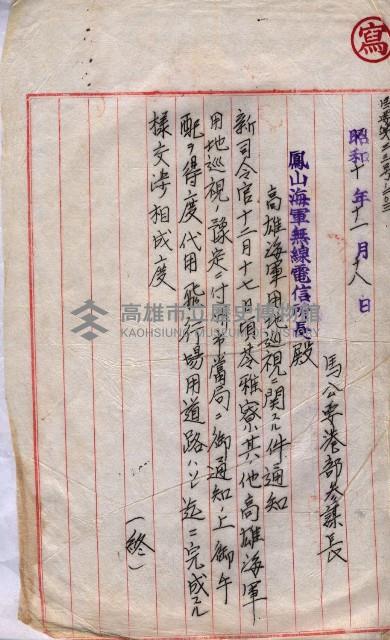 寫
昭和十年十一月十八日
馬公要港部參謀長
鳳山海軍無線電信所長殿
高雄海軍用地巡視ニ関スル件通知
新司令官十二月十七日頃苓雅寮其ノ他高雄海軍
用地巡視ノ豫定ニ付市當局ニ御通知ノ上御手
配ヲ得度代用飛行場用道路ハ迄ニ完成スル
様交渉相成度
(終)
高雄市立歷史博物館
KAOHSIUNG MUSEUM OF HISTORY